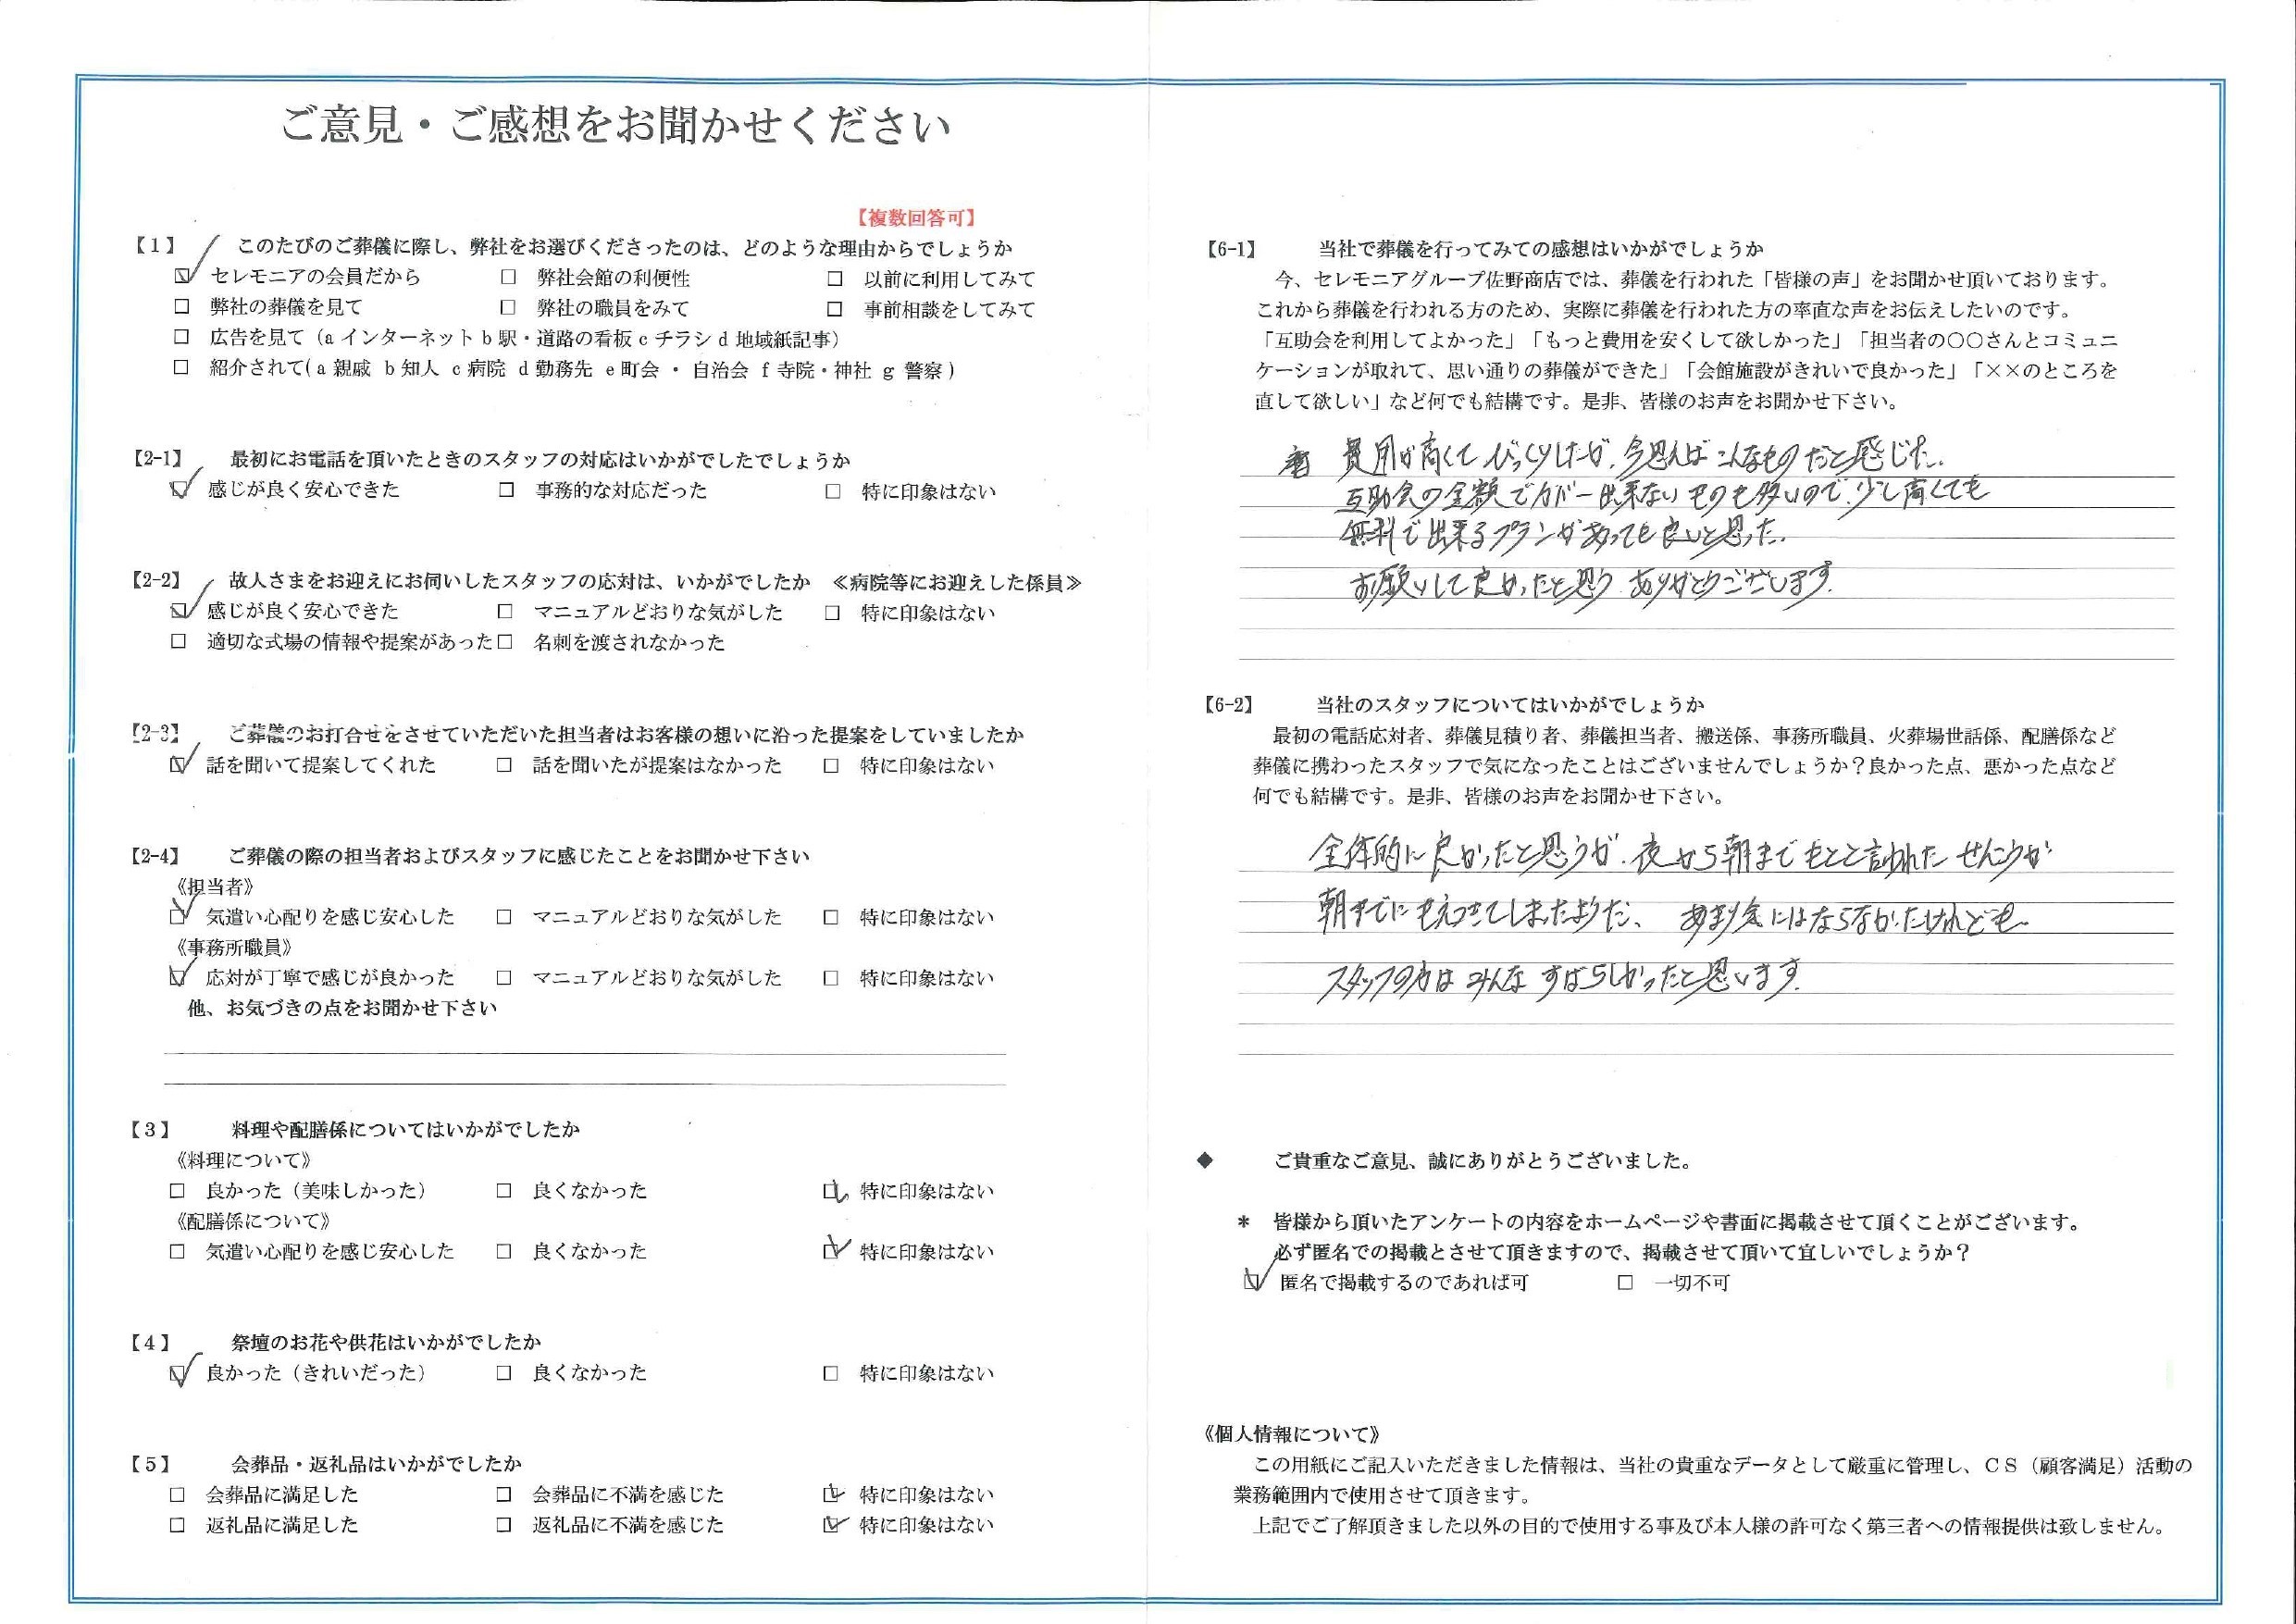 ご意見・ご感想をお聞かせください
【複数回答可】
【1】 このたびのご葬儀に際し、弊社をお選びくださったのは、どのような理由からでしょうか
☑ セレモニアの会員だから □ 弊社会館の利便性 □ 以前に利用してみて
□ 弊社の葬儀を見て □ 弊社の職員をみて □ 事前相談をしてみて
□ 広告を見て（a インターネット b 駅・道路の看板 c チラシ d 地域紙記事）
□ 紹介されて( a 親戚 b 知人 c 病院 d 勤務先 e 町会 ・ 自治会 f 寺院・神社 g 警察 )
【2-1】 最初にお電話を頂いたときのスタッフの対応はいかがでしたでしょうか
☑ 感じが良く安心できた □ 事務的な対応だった □ 特に印象はない
【2-2】 故人さまをお迎えにお伺いしたスタッフの応対は、いかがでしたか ≪病院等にお迎えした係員≫
☑ 感じが良く安心できた □ マニュアルどおりな気がした □ 特に印象はない
□ 適切な式場の情報や提案があった □ 名刺を渡されなかった
【2-3】 ご葬儀のお打合せをさせていただいた担当者はお客様の想いに沿った提案をしていましたか
☑ 話を聞いて提案してくれた □ 話を聞いたが提案はなかった □ 特に印象はない
【2-4】 ご葬儀の際の担当者およびスタッフに感じたことをお聞かせ下さい
《担当者》
☑ 気遣い心配りを感じ安心した □ マニュアルどおりな気がした □ 特に印象はない
《事務所職員》
☑ 応対が丁寧で感じが良かった □ マニュアルどおりな気がした □ 特に印象はない
他、お気づきの点をお聞かせ下さい
【3】 料理や配膳係についてはいかがでしたか
《料理について》
□ 良かった（美味しかった） □ 良くなかった ☑ 特に印象はない
《配膳係について》
□ 気遣い心配りを感じ安心した □ 良くなかった ☑ 特に印象はない
【4】 祭壇のお花や供花はいかがでしたか
☑ 良かった（きれいだった） □ 良くなかった □ 特に印象はない
【5】 会葬品・返礼品はいかがでしたか
□ 会葬品に満足した □ 会葬品に不満を感じた ☑ 特に印象はない
□ 返礼品に満足した □ 返礼品に不満を感じた ☑ 特に印象はない
【6-1】 当社で葬儀を行ってみての感想はいかがでしょうか
今、セレモニアグループ佐野商店では、葬儀を行われた「皆様の声」をお聞かせ頂いております。
これから葬儀を行われる方のため、実際に葬儀を行われた方の率直な声をお伝えしたいのです。
「互助会を利用してよかった」「もっと費用を安くして欲しかった」「担当者の〇〇さんとコミュニ
ケーションが取れて、思い通りの葬儀ができた」「会館施設がきれいで良かった」「××のところを
直して欲しい」など何でも結構です。是非、皆様のお声をお聞かせ下さい。
費用が高くてびっくりしたが、今思えばこんなものだと感じた。
互助会の金額でカバー出来ないものも多いので、少し高くても
無料で出来るプランがあっても良いと思った。
お願いして良かったと思う ありがとうございます。
【6-2】 当社のスタッフについてはいかがでしょうか
最初の電話応対者、葬儀見積り者、葬儀担当者、搬送係、事務所職員、火葬場世話係、配膳係など
葬儀に携わったスタッフで気になったことはございませんでしょうか？良かった点、悪かった点など
何でも結構です。是非、皆様のお声をお聞かせ下さい。
全体的に良かったと思うが、夜から朝までもつと言われた せんこうが
朝までにもえつきてしまったようだ、 あまり気にはならなかったけれども。
スタッフの方は みんな すばらしかったと思います。
◆ ご貴重なご意見、誠にありがとうございました。
＊ 皆様から頂いたアンケートの内容をホームページや書面に掲載させて頂くことがございます。
必ず匿名での掲載とさせて頂きますので、掲載させて頂いて宜しいでしょうか？
☑ 匿名で掲載するのであれば可 □ 一切不可
《個人情報について》
この用紙にご記入いただきました情報は、当社の貴重なデータとして厳重に管理し、ＣＳ（顧客満足）活動の
業務範囲内で使用させて頂きます。
上記でご了解頂きました以外の目的で使用する事及び本人様の許可なく第三者への情報提供は致しません。